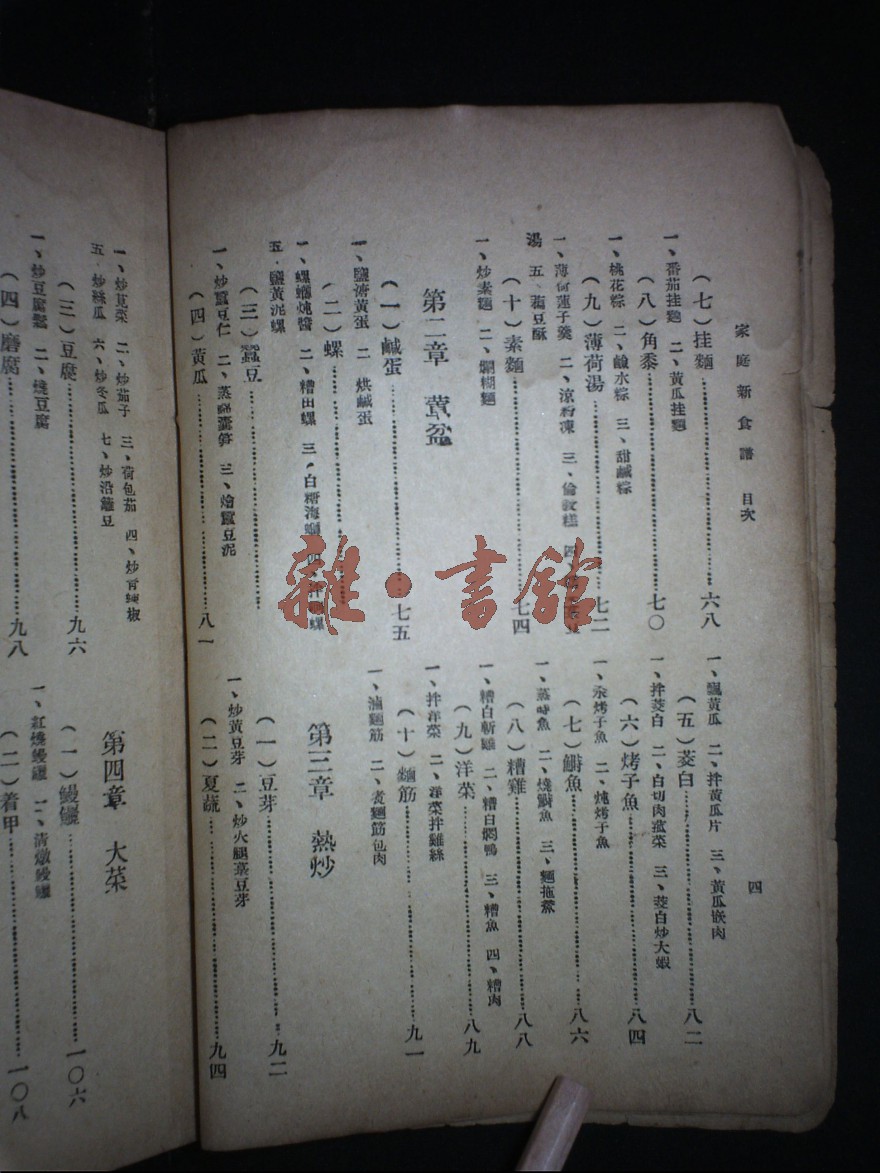 家庭新食譜 目次
四
（七）挂麵……六八
一、番茄挂麵 二、黃瓜挂麵
（八）角黍……七〇
一、桃花粽 二、鹼水粽 三、甜鹹粽
（九）薄荷湯……七二
一、薄荷蓮子羹 二、涼粉凍 三、倫教糕 四、
湯 五、藕豆酥
（十）素麵……七四
一、炒素麵 二、爛糊麵
第二章 葷盆
（一）鹹蛋……七五
一、鹽滷黃蛋 二、烘鹹蛋
（二）螺……
一、螺螄炖醬 二、糟田螺 三、白糖海螄 四、拌 螺
五、鹽黃泥螺
（三）蠶豆……
一、炒蠶豆仁 二、蒸 三、燴蠶豆泥
（四）黃瓜……八一
一、飄黃瓜 二、拌黃瓜片 三、黃瓜嵌肉
（五）茭白……八二
一、拌茭白 二、白切肉蒸菜 三、茭白炒大蝦
（六）烤子魚……八四
一、汆烤子魚 二、炖烤子魚
（七）鰣魚……八六
一、蒸鰣魚 二、燒鰣魚 三、麵拖鯗
（八）糟雞……八八
一、糟白斬雞 二、糟白燜鴨 三、糟魚 四、糟肉
（九）洋菜……八九
一、拌洋菜 二、洋菜拌雞絲
（十）麵筋……九一
一、滷麵筋 二、煮麵筋包肉
第三章 熱炒
（一）豆芽……九二
一、炒黃豆芽 二、炒火腿菉豆芽
（二）夏蔬……九四
一、炒莧菜 二、炒茄子 三、荷包茄 四、炒青辣椒
五、炒絲瓜 六、炒冬瓜 七、炒沿籬豆
（三）豆腐……九六
一、炒豆腐鬆 二、燒豆腐
（四）磨腐……九八
第四章 大菜
（一）鰻鱺……一〇六
一、紅燒鰻鱺 二、清燉鰻鱺
（二）着甲……一〇八
雜·書館